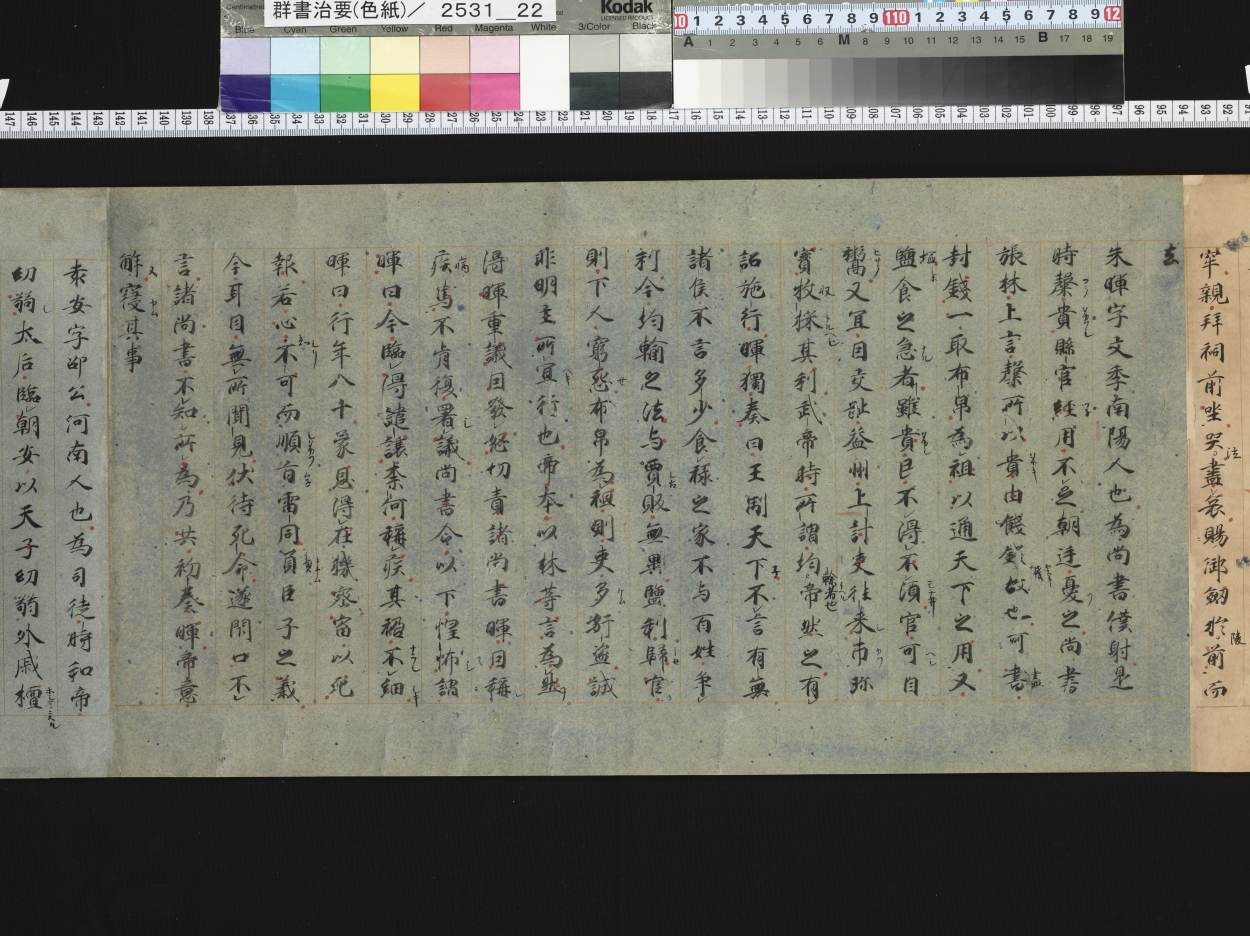 群書治要(色紙)／ 2531__22
Kodak
LICENSED PRODUCT
Blue Cyan Green Yellow Red Magenta White 3/Color Black
牢親拜祠前坐哭盡哀賜御劒於前而
去
朱暉字文季南陽人也為尚書僕射是
時穀貴縣官経用不足朝廷憂之尚書
張林上言穀所以貴由錢賤故也可
封錢一取布帛為租以通天下之用又
鹽食之急者雖貴臣不得不須官可自
鬻又宜因交趾益州上計吏往来市珎
寶收採其利武帝時所謂均帝然之有
詔施行暉獨奏曰王制天下不言有無
諸侯不言多少食禄之家不与百姓爭
利今均輸之法与賈販無異鹽利歸官
則下人窮怨布帛為租則吏多姧盗誠
非明主所宜行也帝本以林等言為然
得暉重議因發怒切責諸尚書暉因稱
疾篤不肯復署議尚書令以下惶怖謂
暉曰今臨得譴讓柰何稱疾其禍不細
暉曰行年八十蒙恩得在機密當以死
報若心不可而順旨雷同負臣子之義
今耳目無所聞見伏待死命遂閇口不
言諸尚書不知所為乃共劾奏暉帝意
解寑其事
袁安字邵公河南人也為司徒時和帝
幼弱太后臨朝安以天子幼弱外戚檀